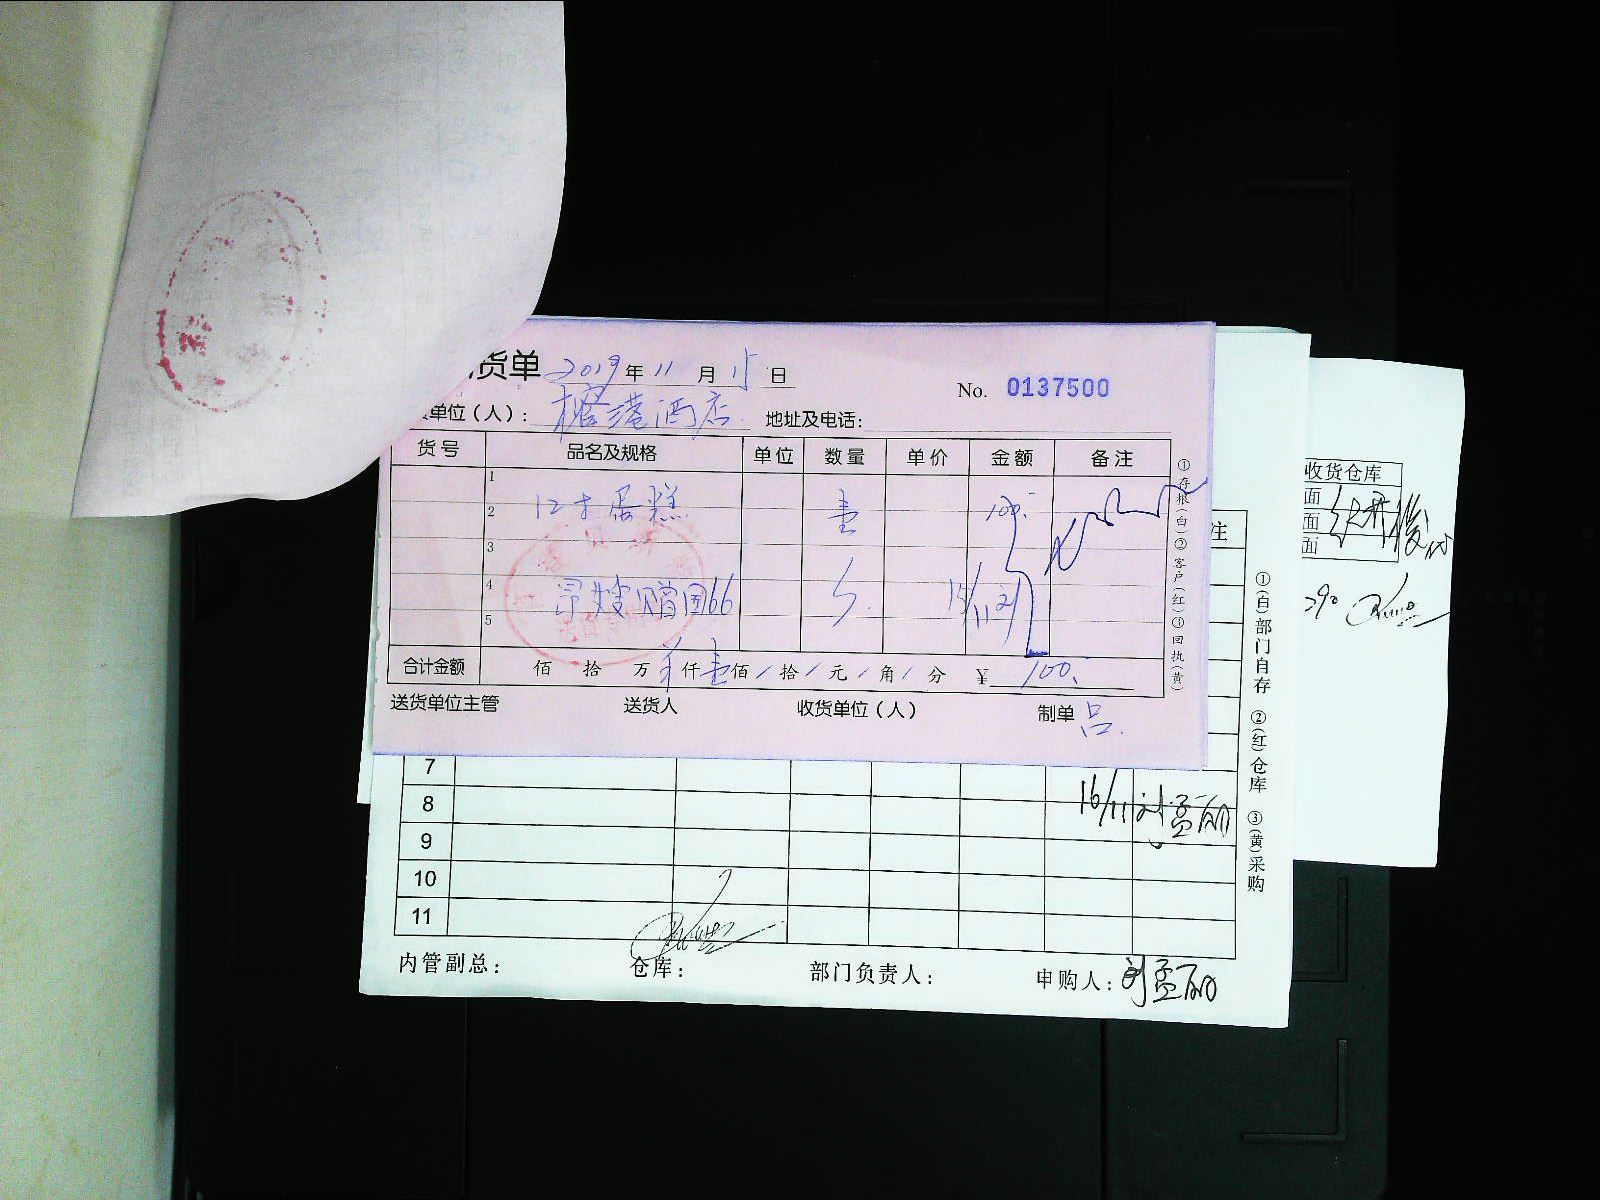 货单 2019年 11月 15日
No. 0137500
单位（人）： 港酒店 地址及电话：
货号 品名及规格 单位 数量 单价 金额 备注
1
2 12寸蛋糕 壹 100.-
3
4 66
5
合计金额 佰 拾 万 仟壹佰/拾/元/角/分 ¥ 100.-
送货单位主管 送货人 收货单位（人） 制单 吕
①存根（白）②客户（红）③回执（黄）
收货仓库
面
面
面
290
注
7
8 16/11 刘孟丽
9
10
11
内管副总： 仓库： 部门负责人： 申购人：刘孟丽
①（白）部门自存 ②（红）仓库 ③（黄）采购